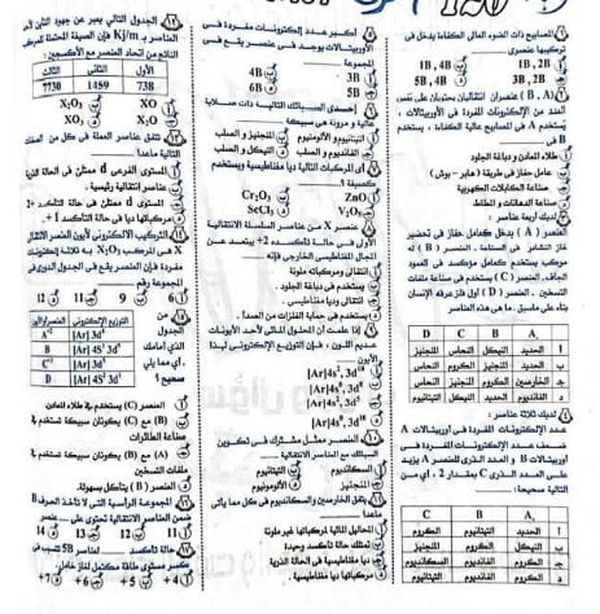 المصابيح ذات الضوء العالى الكفاءة يدخل فى
تركيبها عنصرى
1B , 2B
1B , 4B
3B , 2B
5B , 4B
( B , A ) عنصران انتقاليان يحتويان على نفس
العدد من الإلكترونات المفردة فى الأوربيتالات ،
يُستخدم A فى المصابيح عالية الكفاءة ، يستخدم
B فى
طلاء المعادن و دباغة الجلود
عامل حفاز فى طريقة ( هابر – بوش )
صناعة الكابلات الكهربية
صناعة الدهانات و المطاط
لديك أربعة عناصر :
العنصر ( A ) يدخل كعامل حفاز فى تحضير
غاز النشادر فى الصناعة . العنصر ( B ) له
مركب يستخدم كعامل مؤكسد فى العمود
الجاف . العنصر ( C ) يستخدم فى صناعة ملفات
التسخين . العنصر ( D ) أول فلز عرفه الإنسان
بناء على ماسبق . ما هى هذه العناصر
A B C D
أ الحديد النيكل النحاس المنجنيز
ب الحديد المنجنيز الكروم النحاس
جـ الخارصين الكروم المنجنيز النحاس
د الكروم الحديد النيكل التيتانيوم
لديك ثلاثة عناصر :
عدد الإلكترونات المفردة فى أوربيتالات A
ضعف عدد الإلكترونات المفردة فى
أوربيتالات B و العدد الذرى للعنصر A يزيد
على العدد الذرى C بمقدار 2 ، أى من
التالية صحيحة :
A B C
أ الحديد التيتانيوم الكروم
ب النيكل الكروم المنجنيز
جـ الحديد الفانديوم السكانديوم
د الكروم الفانديوم التيتانيوم
أكبر عدد إلكترونات مفردة فى
الأوربيتالات يوجد فى عنصر يقع فى
المجموعة
3B
4B
5B
6B
إحدى السبائك التالية ذات صلابة
عالية و مرونة هى سبيكة
التيتانيوم و الألومنيوم
المنجنيز و الصلب
الفانديوم و الصلب
النيكل و الصلب
أى المركبات التالية ديا مغناطيسية ويستخدم
كصبغة ؟
ZnO
Cr₂O₃
V₂O₅
ScCl₃
عنصر X من عناصر السلسلة الانتقالية
الأولى فى حالة تأكسده 2+ يبتعد عن
المجال المغناطيسى الخارجى فإنه
انتقالى ومركباته ملونة
يستخدم فى دباغة الجلود .
انتقالى وديا مغناطيسى .
يستخدم فى حماية الفلزات من الصدأ .
إذا علمت أن المحلول المائى لأحد الأيونات
عديم اللون ، فإن التوزيع الإلكترونى لهذا
الأيون
[Ar]4s⁰, 3d¹⁰
[Ar]4s⁰, 3d⁸
[Ar]4s², 3d⁵
[Ar]4s⁰, 3d⁹
العنصر ممثل مشترك فى تكوين
السبائك مع العناصر الانتقالية
السكانديوم
التيتانيوم
المنجنيز
الألومنيوم
يتفق الخارصين والسكانديوم فى كل مما يأتى
ماعدا
المحاليل المائية لمركباتها غير ملونة
تمتلك حالة تأكسد وحيدة
ديا مغناطيسية فى الحالة الذرية
مركباتها ديا مغناطيسية .
الجدول التالي يعبر عن جهود التأين
العناصر بـ Kj/m فإن الصيغة المحتملة للمركب
الناتج من اتحاد العنصر مع الأكسجين :
الأول الثانى الثالث
738 1459 7730
XO
X₂O₃
X₂O
XO₃
تتفق عناصر العملة فى كل من الصفات
التالية ماعدا
المستوى الفرعى d ممتلئ فى الحالة الذرية
عناصر انتقالية رئيسية .
المستوى d ممتلئ فى حالة التأكد 2+
مركباتها ديا فى حالة التأكسد 1+ .
التركيب الإلكترونى لأيون العنصر الانتقالى
X فى المركب X₂O₃ به ثلاثة إلكترونات
مفردة فإن العنصر يقع فى الجدول الدورى فى
المجموعة رقم
6
9
11
12
من
الجدول
الذى أمامك
، أى مما يلى
صحيح ؟
العنصر/والأيون التوزيع الإلكترونى
[Ar] 3d
B [Ar] 4S¹ 3d⁵
[Ar] 3d
D [Ar] 4S² 3d
العنصر (C) يستخدم فى طلاء المعادن
(B) مع (C) يكونان سبيكة تستخدم فى
صناعة الطائرات
(A) مع (B) يكونان سبيكة تستخدم فى
ملفات التسخين
العنصر ( B ) يتآكل بسهولة.
المجموعة الرأسية التى لا تأخذ الحرف B
ضمن العناصر الانتقالية تحتوى على ..... عنصر
11
12
13
14
حالة تأكسد لعناصر 5B تتسبب فى
كسر مستوى طاقة مكتمل لغاز خامل
+4
+5
+6
+7